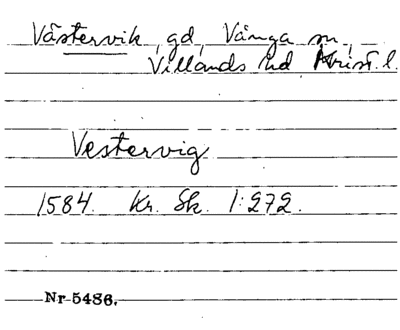 Västervik gd Vånga sn,
Villands hd Krist. l.
Vestervig
1584. Kr. Sk. 1:272.
Nr 5486.